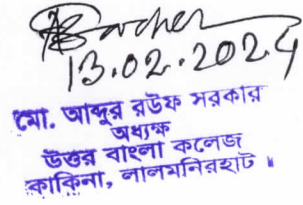 13.02.2024
মো. আব্দুর রউফ সরকার
অধ্যক্ষ
উত্তর বাংলা কলেজ
কাকিনা, লালমনিরহাট।